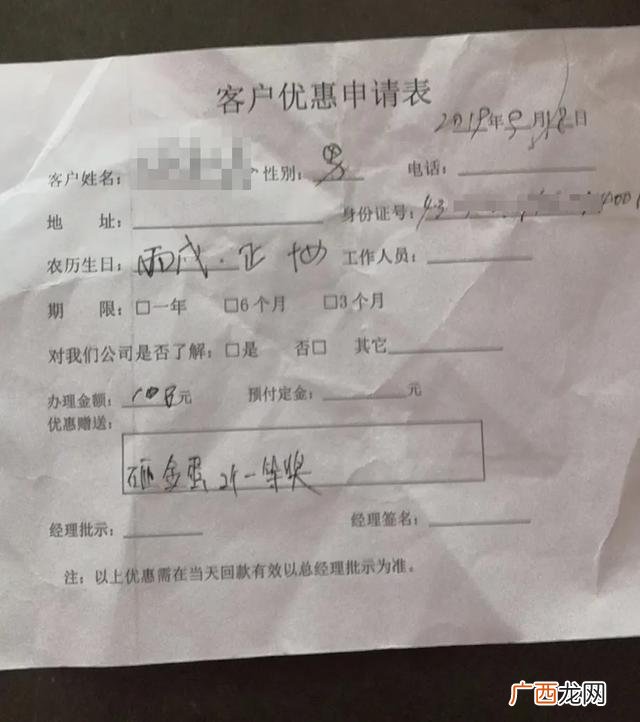 客户优惠申请表
2019年9月18日
客户姓名： 性别：男 电话：
地 址： 身份证号：43
农历生日：丙戌·正 工作人员：
期 限：□一年 □6个月 □3个月
对我们公司是否了解：□是 否□ 其它
办理金额：元 预付定金：元
优惠赠送：
砸金蛋 一等奖
经理批示： 经理签名：
注：以上优惠需在当天回款有效以总经理批示为准。
广西龙网